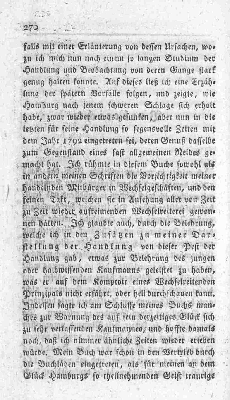 272
falls mit einer Erläuterung von dessen Ursachen, wo-
zu ich mich nun nach einem so langen Studium der
Handlung und Beobachtung von deren Gange stark
genug halten konnte. Auf dieses ließ ich eine Erzäh-
lung der spätern Vorfälle folgen, und zeigte, wie
Hamburg nach jenem schweren Schlage sich erholt
habe, zwar wieder etwas gesunken, aber nun in die letzten
für seine Handlung so segenvolle Zeiten mit
dem Jahr 1792 eingetreten sei, deren Genuß dasselbe
zum Gegenstand eines fast allgemeinen Neides ge-
macht hat. Ich rühmte in diesem Buche sowohl als
in andern meinen Schriften die Vorsichtigkeit meiner
handelnden Mitbürger in Wechselgeschäften, und den
feinen Takt, welchen sie in Ansehung aller von Zeit
zu Zeit wieder auftretenden Wechselreiterei gewonnen
haben. Ich glaubte auch, durch die Beschreibung,
welche ich in den Zusätzen zu meiner Dar-
stellung der Handlung von dieser Pest der
Handlung gab, etwas zur Belehrung des jungen
oder halbwissenden Kaufmanns geleistet zu haben,
was er auf dem Komptoir eines Wechselreitenden
Prinzipals nicht erfährt, oder hell durchschauen kann.
Indessen sagte ich am Schlusse meines Buchs manches
zur Warnung des auf sein derzeitiges Glück sich
zu sehr verlassenden Kaufmannes, und hoffte damals
noch, daß ich nimmer ähnliche Zeiten wieder erleben
würde. Mein Buch war schon in den Vertrieb durch
die Buchläden eingetreten, als für meinen an dem
Glück Hamburgs so theilnehmenden Geist traurige